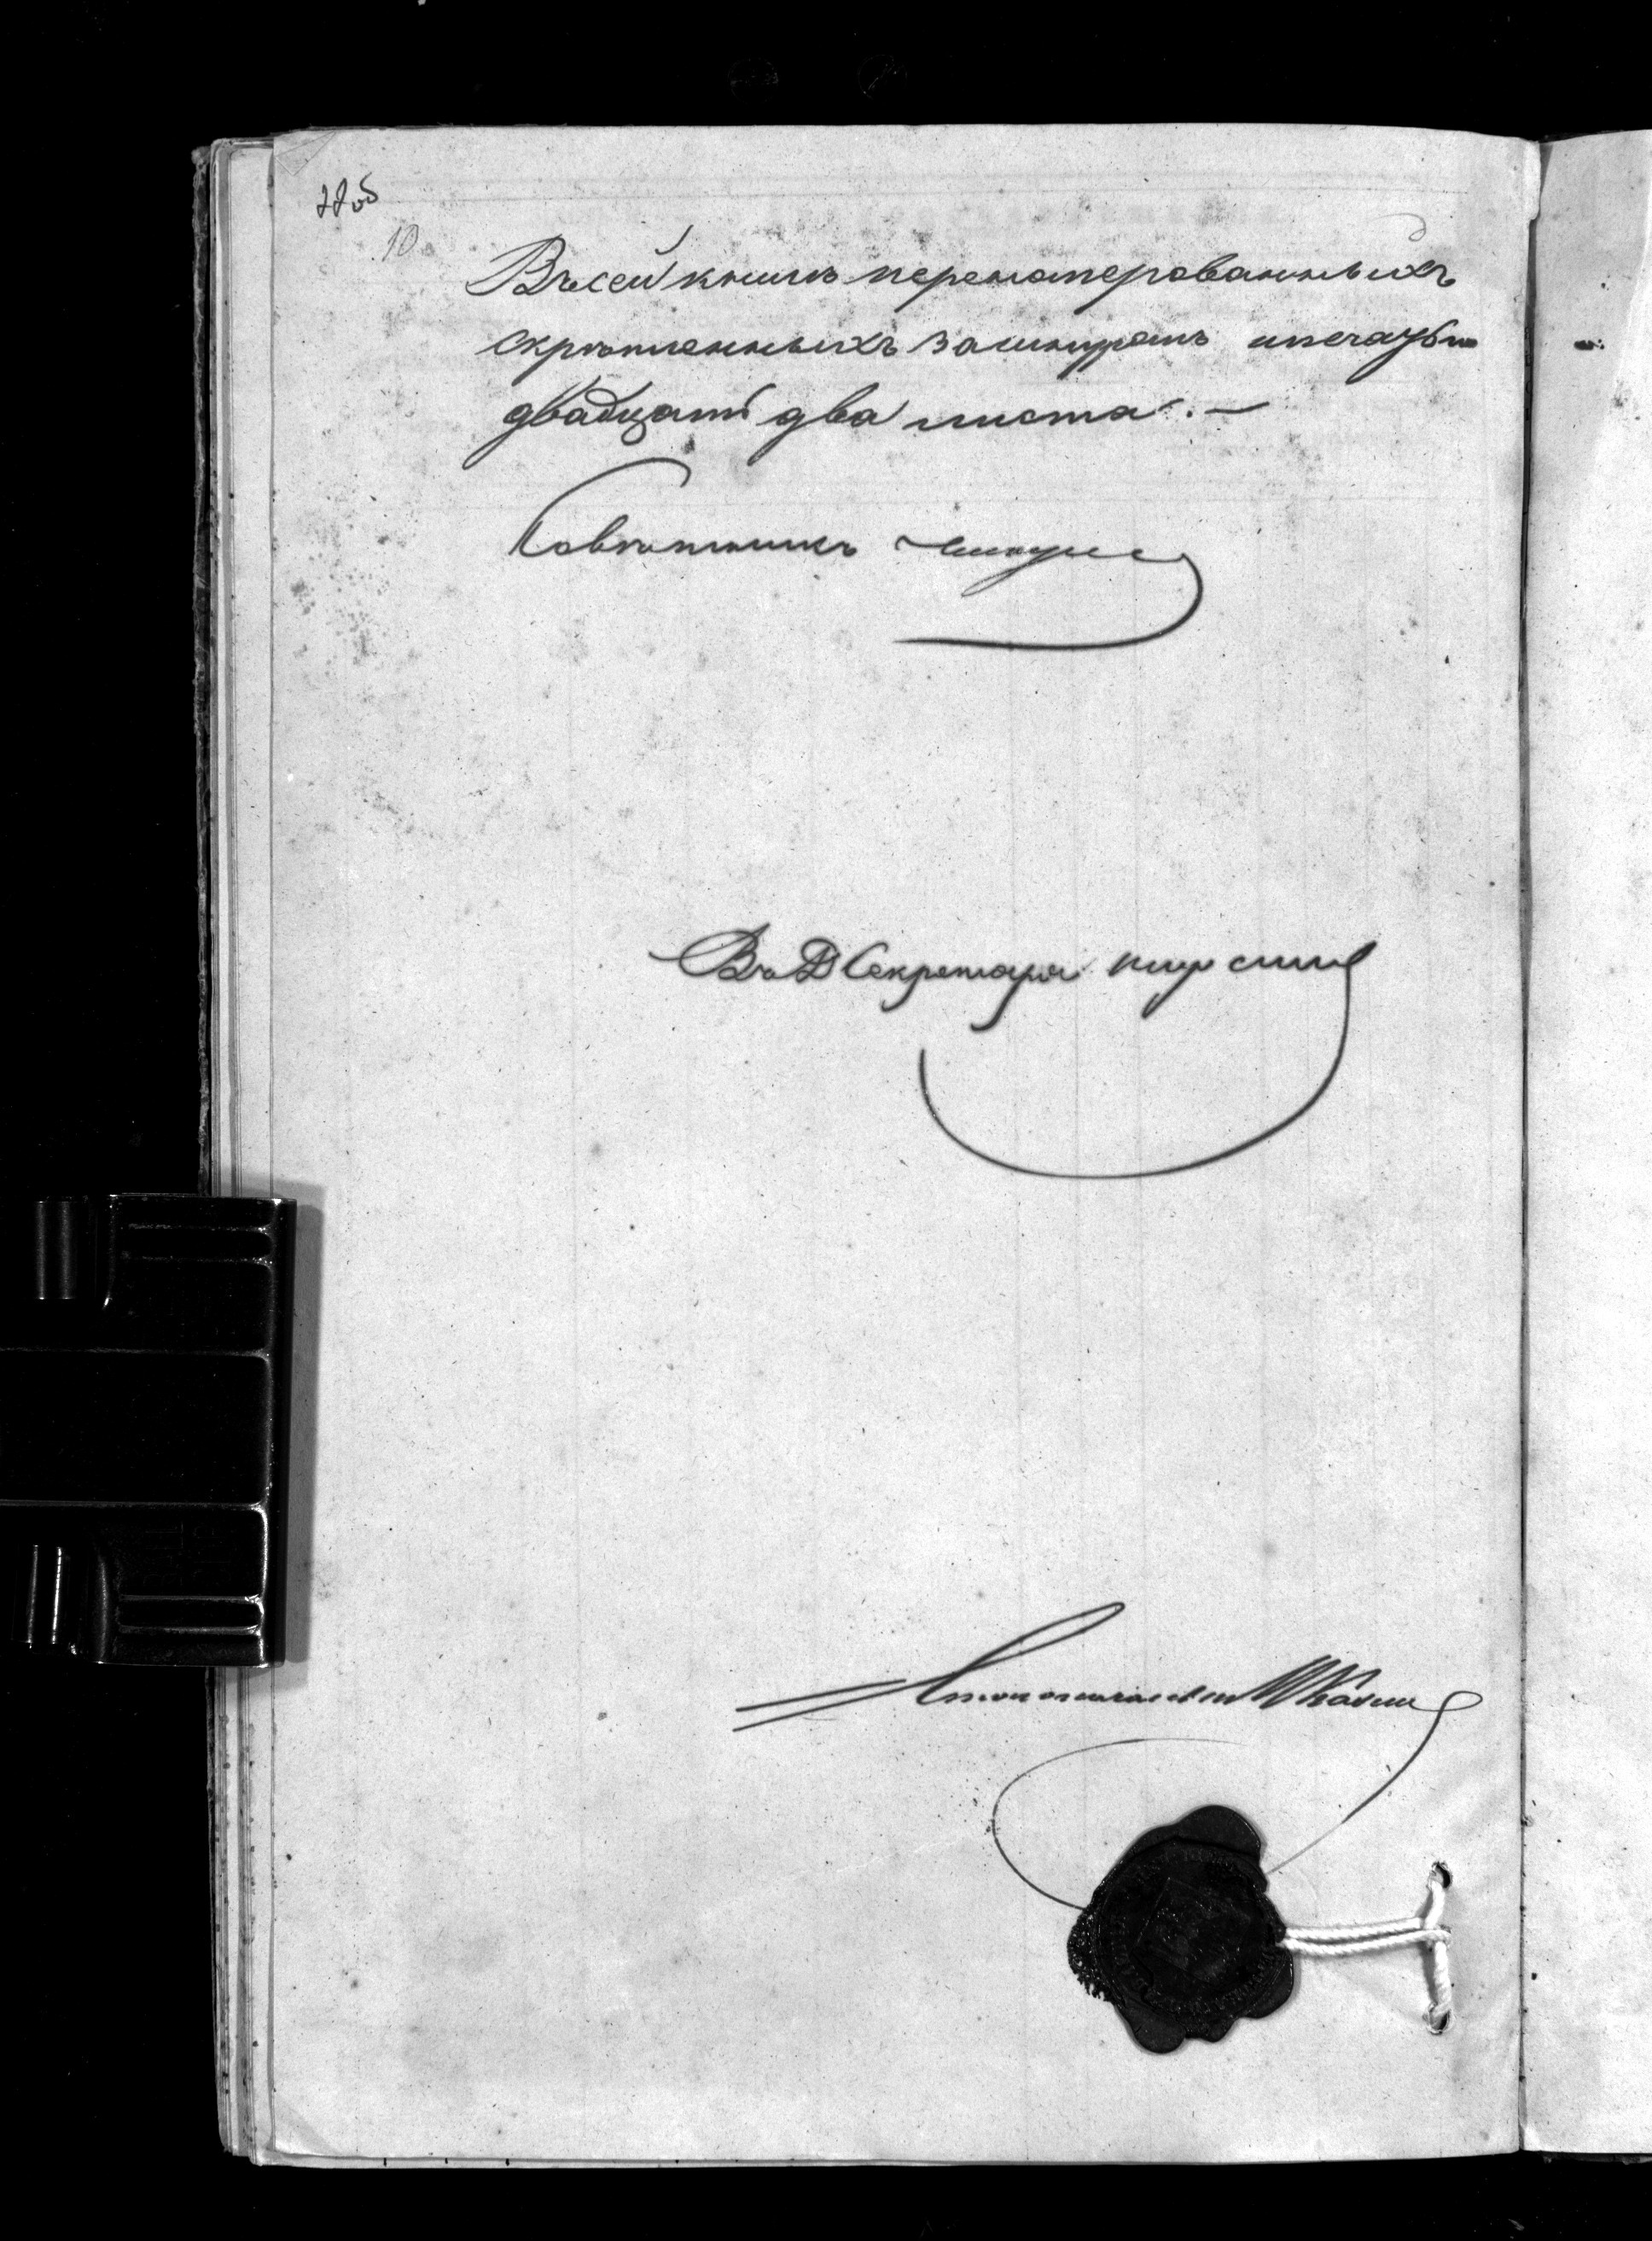 22об
10
Въ сей книгѣ перенумерованныхъ
скрѣпленныхъ за шнуромъ и печатью
двадцать два листа. —
Совѣтникъ
В. Д. Секретаря
Столоначальникъ